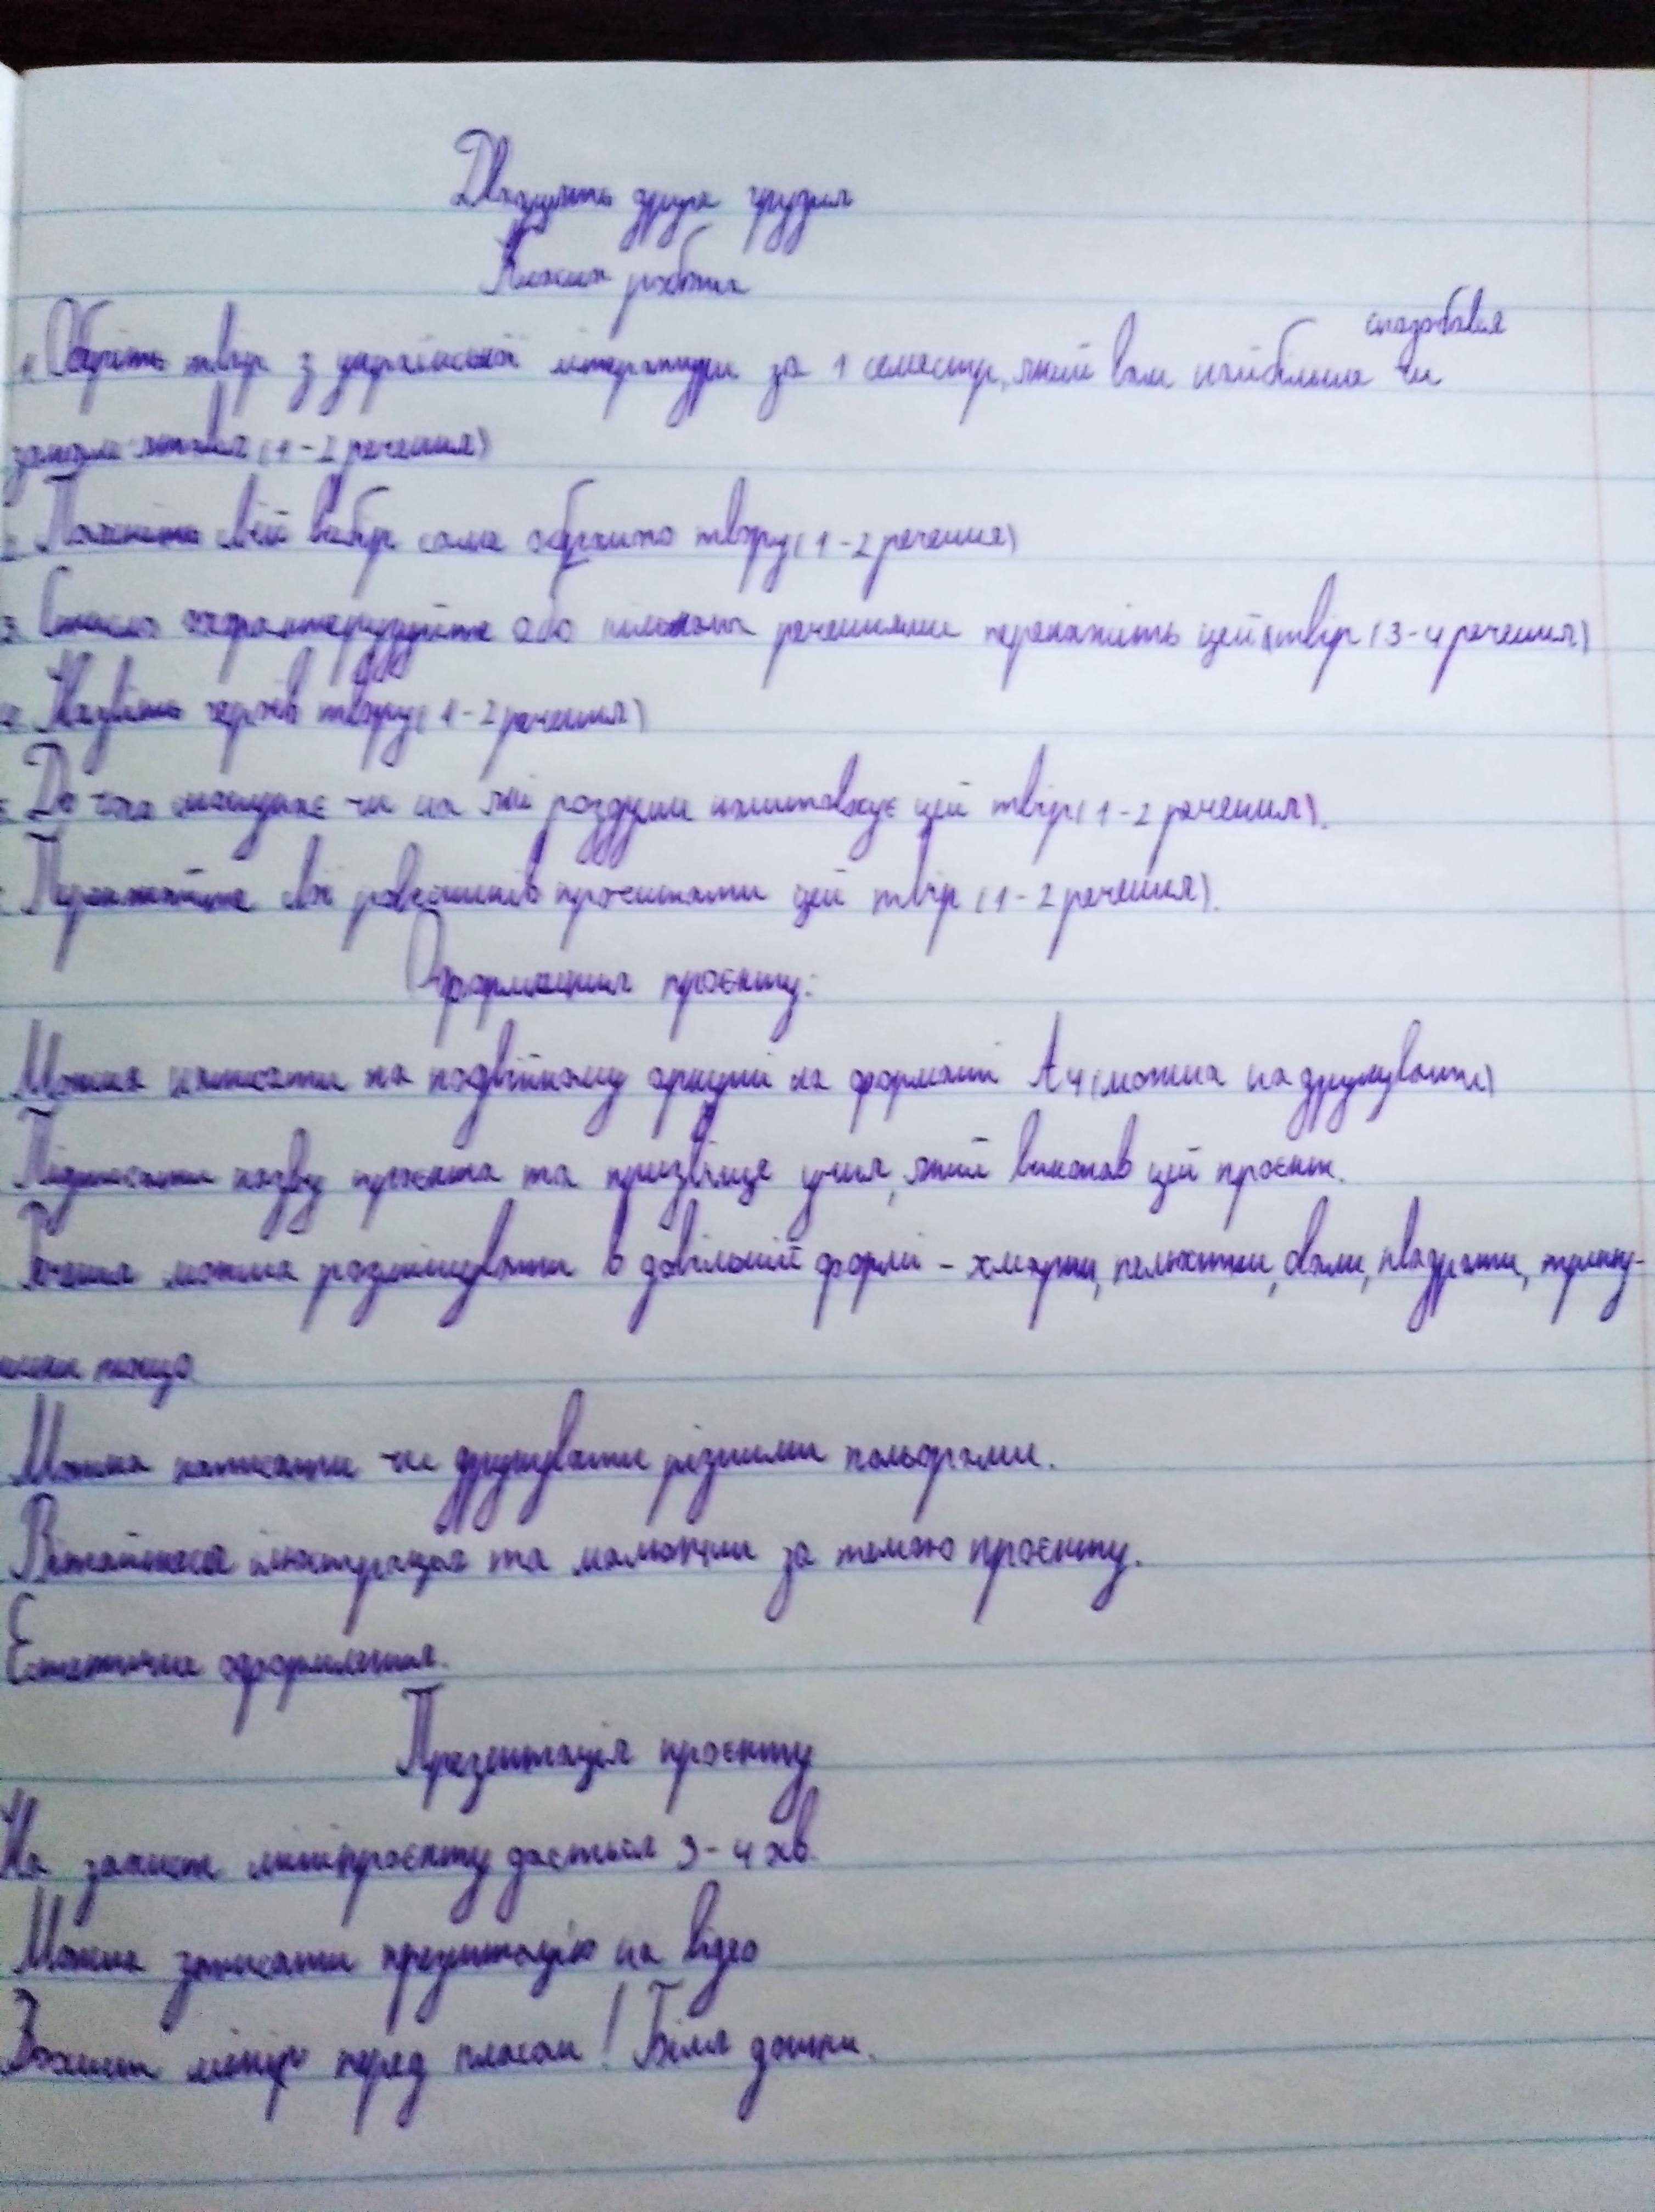 Двадцять друге грудня
Класна робота
1. Оберіть твір з української літератури за 1 семестр, який вам найбільше сподобався чи
запам'ятався (1-2 речення)
2. Поясніть свій вибір саме обраного твору (1-2 речення)
3. Стисло охарактеризуйте або кількома реченнями перекажіть цей твір (3-4 речення)
4. Назвіть героїв твору (1-2 речення)
5. До чого спонукає чи на які роздуми наштовхує цей твір (1-2 речення).
Переконайте свої ровесників прочитати цей твір (1-2 речення).
Оформлення проєкту:
Можна написати на подвійному аркуші на форматі А4 (можна надрукувати)
Підписати назву проєкта та прізвище учня, який виконав цей проєкт.
Речення можна розміщувати в довільній формі - хмарки, пелюстки, овали, квадрати, трику-
тники тощо
Можна написати чи друкувати різними кольорами.
Вітаються ілюстрація та малюнки за темою проєкту.
Естетичне оформлення.
Презентація проєкту
На захист мініпроєкту дається 3-4 хв.
Можна записати презентацію на відео
Захист перед класом! Біля дошки.